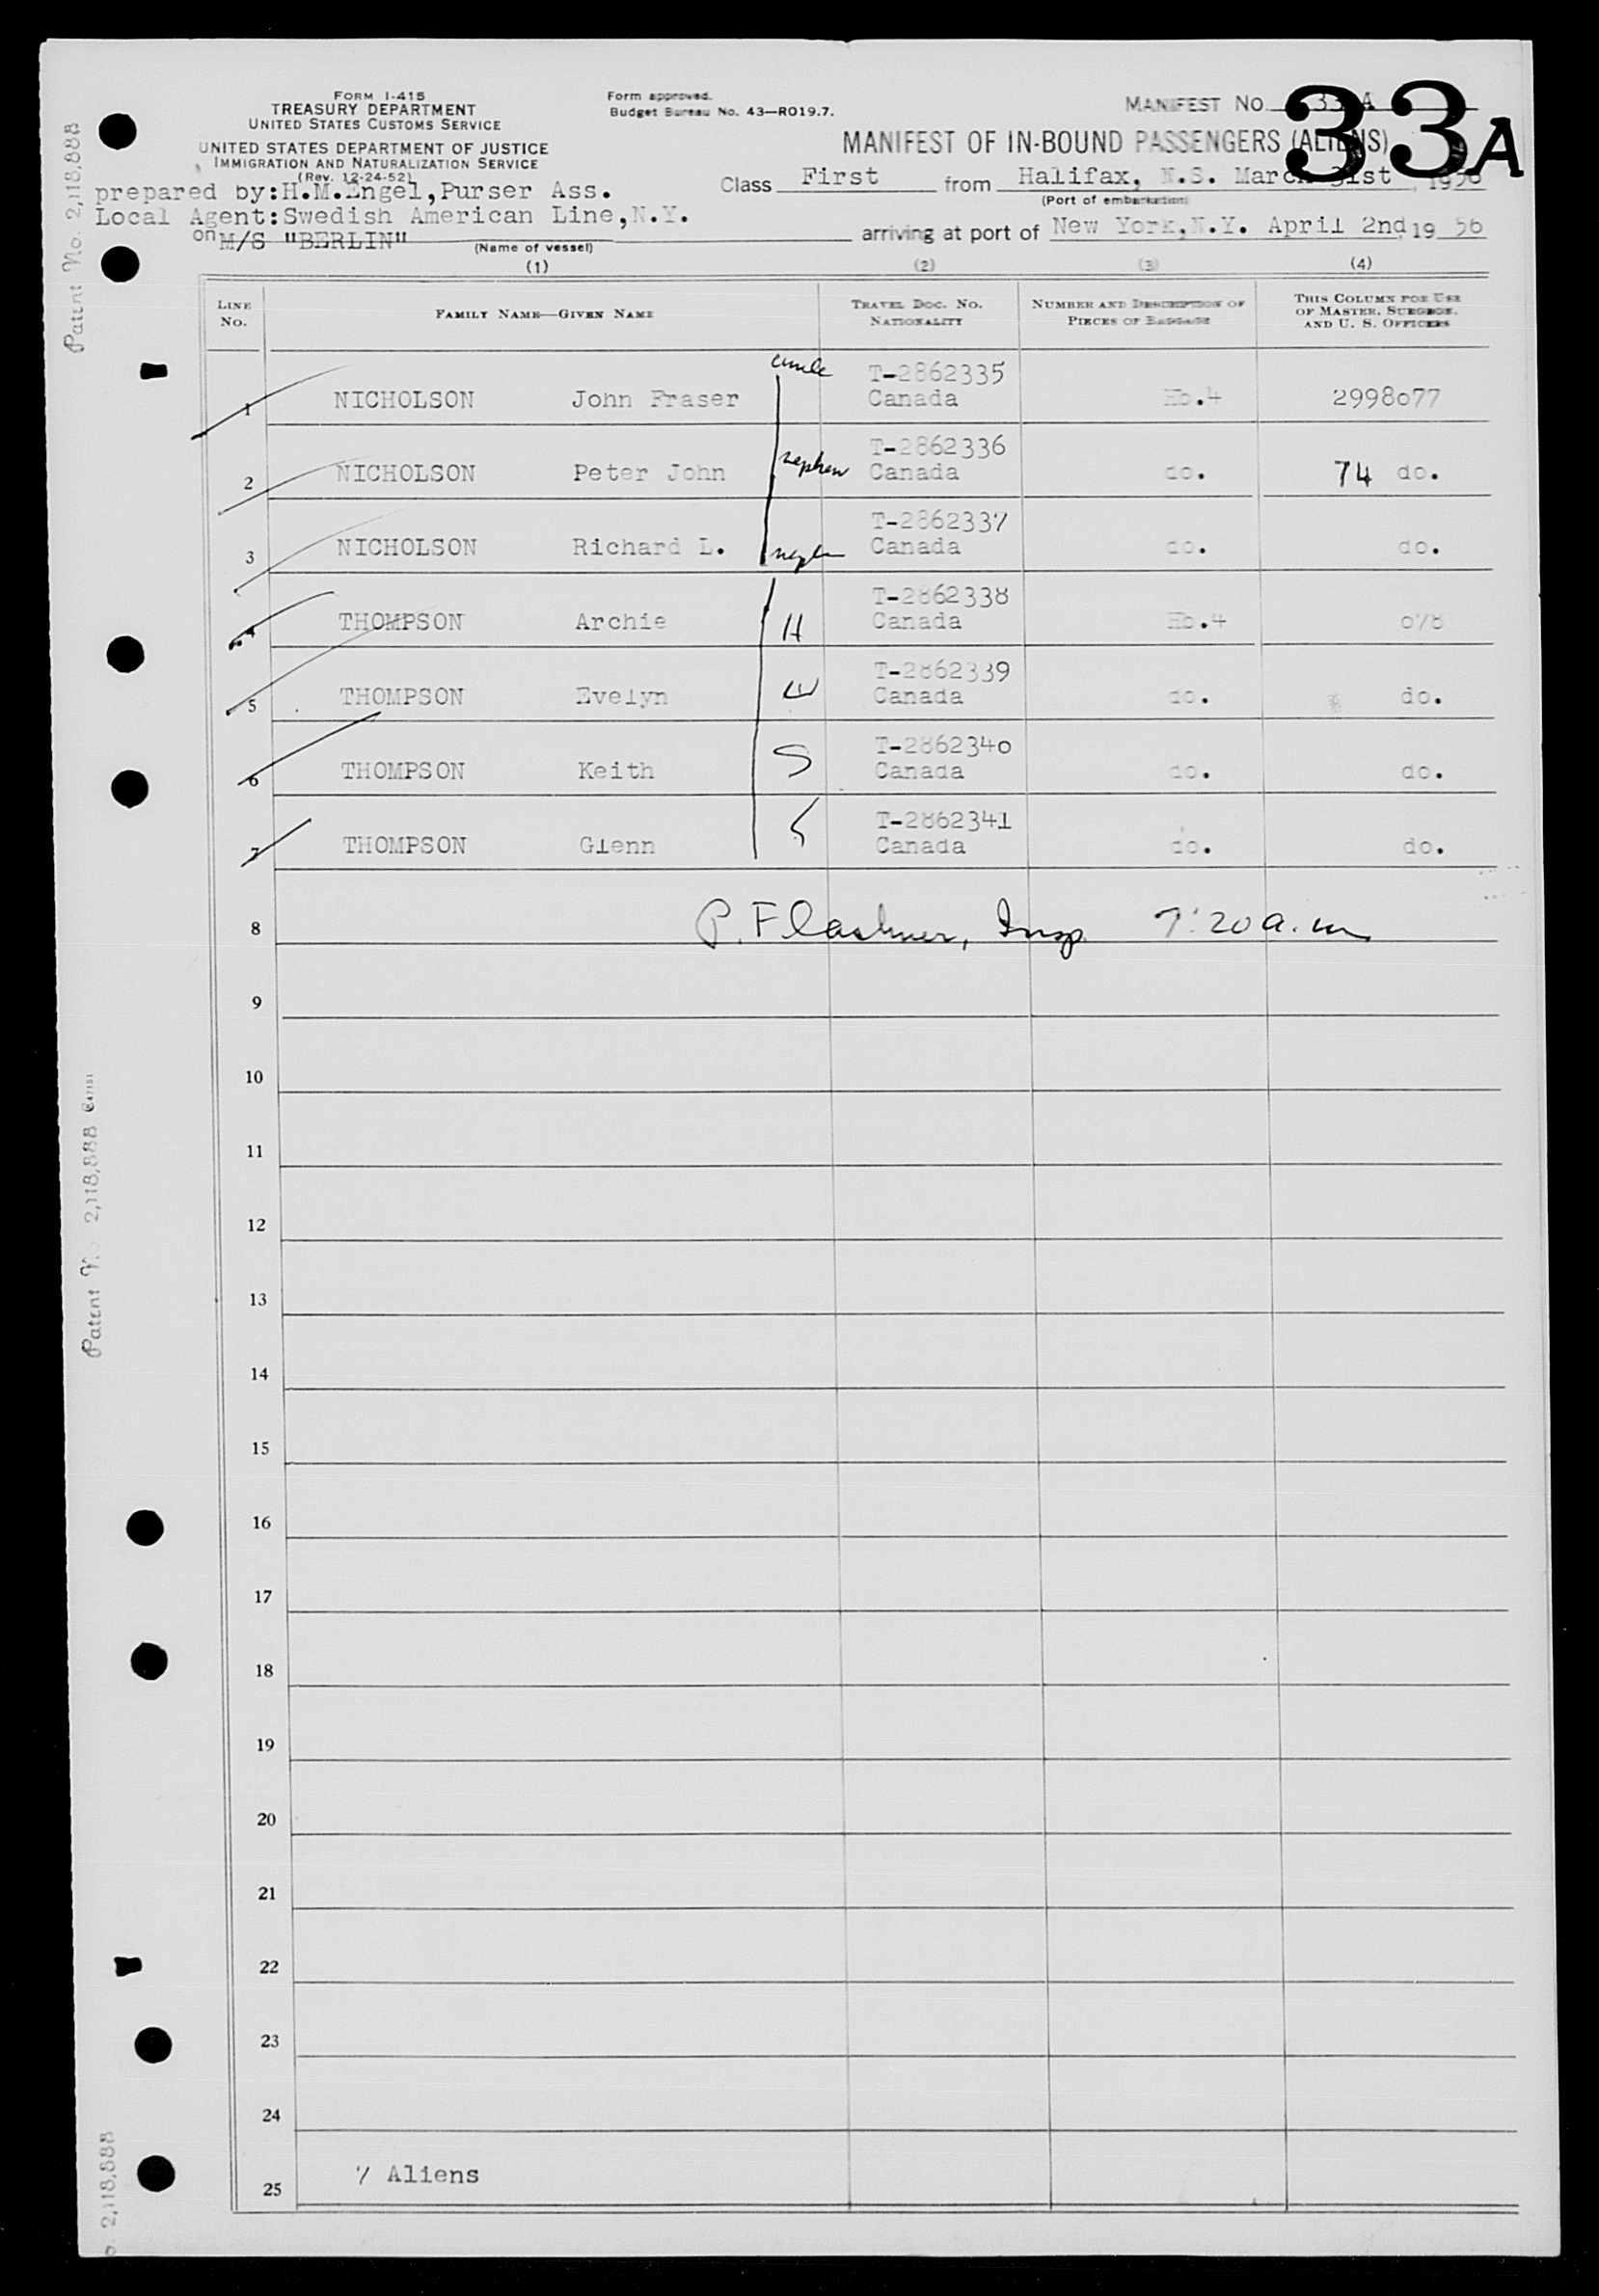 FORM I-415
TREASURY DEPARTMENT
UNITED STATES CUSTOMS SERVICE
UNITED STATES DEPARTMENT OF JUSTICE
IMMIGRATION AND NATURALIZATION SERVICE
(Rev. 12-24-52)
Form approved.
Budget Bureau No. 43—R019.7.
MANIFEST NO. 33 A
33A
MANIFEST OF IN-BOUND PASSENGERS (ALIENS)
prepared by:H.M.Engel,Purser Ass.
Class First from Halifax, N.S. March 31st, 1956
(Port of embarkation)
Local Agent:Swedish American Line,N.Y.
on M/S "BERLIN" arriving at port of New York,N.Y. April 2nd, 19 56
(Name of vessel)
(1) (2) (3) (4)
LINE NO.
FAMILY NAME—GIVEN NAME
TRAVEL DOC. NO.
NATIONALITY
NUMBER AND DESCRIPTION OF
PIECES OF BAGGAGE
THIS COLUMN FOR USE
OF MASTER, SURGEON,
AND U. S. OFFICERS
uncle T-2862335
1 NICHOLSON John Fraser Canada Hb.4 2998077
T-2862336
2 NICHOLSON Peter John nephew Canada do. 74 do.
T-2862337
3 NICHOLSON Richard L. Canada do. do.
T-2862338
4 THOMPSON Archie H Canada Hb.4 078
T-2862339
5 THOMPSON Evelyn W Canada do. do.
T-2862340
6 THOMPSON Keith S Canada do. do.
T-2862341
7 THOMPSON Glenn S Canada do. do.
8 P. Flashner, Insp. 7:20 a.m
9
10
11
12
13
14
15
16
17
18
19
20
21
22
23
24
25 7 Aliens
Patent No. 2,118,888
Patent No. 2,118,888
2,118,888